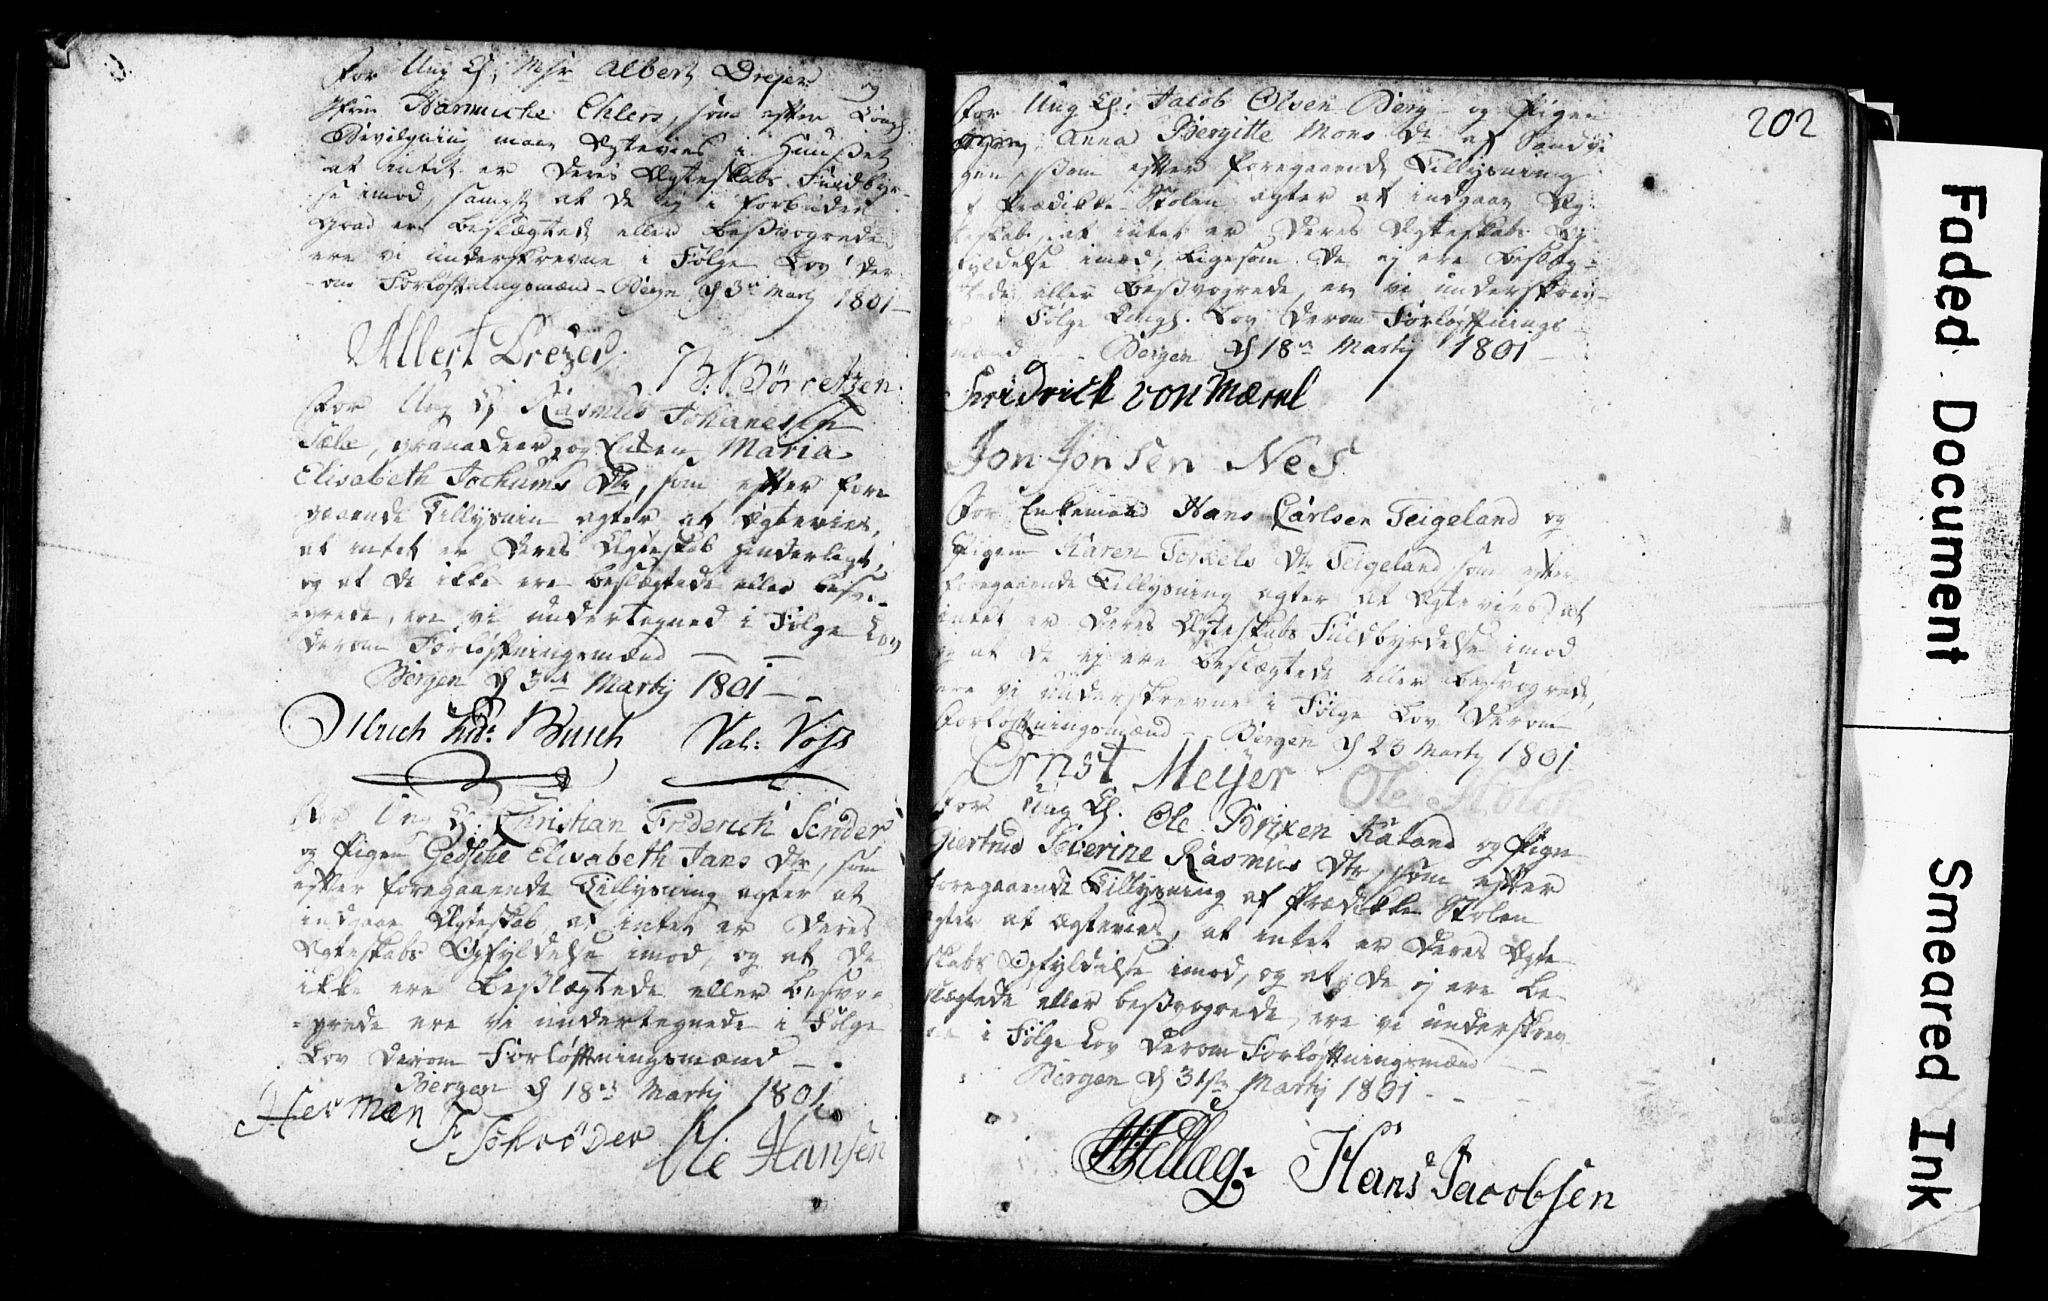 For Ung K: Msr Albert Dreyer og
Jfrue Harmiche Ehlers, som efter Kongl
Bevilgning maae Ægtevies i Huuset
at intet er Deres Ægteskabs Fuldbyr-
se imod, samt at De ej i forbuden
Grad er beslægted eller besvogrede
ere vi underskrevne i Følge Lov der
om Forlovtningsmænd - Bergen d 3 Martij 1801 -
Albert Dreyer
B: Börretzen
For Ung K Rasmus Johanesen
Sæle, granadeer, og Enken Maria
Elisabeth Jochums Dtr, som efter fore
gaaende Tillysnin agter at ægtevies,
at intet er Deres Ægteskab hinderligt,
og at De ikke ere beslægtede eller besvo-
grede, ere vi undertegned i Følge Lov
derom Forlovtningsmænd
Bergen d 3 Martij 1801 -
Ulrich Fridr: Busch Val: Voss
For Ung K: Christian Friderich Schröder
og Pigen Gedsche Elisabeth Jans Dtr, som
efter foregaaende Tillysning agter at
indgaae Ægteskab at intet er Deres
Ægteskabs Opfyldelse imod, og at De
ikke ere beslægtede eller besvo-
grede ere vi undertegnede i Følge
Lov derom Forlovtningsmænd - .
Bergen d 18 Martij 1801
Herman F Schröder Ole Hansen
202
For Ung K: Jacob Olsen Berg og Pigen
Anna Bergitte Mons Dtr af Sandvi
gen, som efter foregaaende Tillysning
f Prædikke-Stolen agter at indgaae Æg-
teskab, at intet er Deres Ægteskabs Op-
fyldelse imod, ligesom De ej ere beslæg-
tede eller besvogrede, ere vi underskrev-
i Følge Kongl. Lov derom Forlovtnings-
mænd - Bergen d 18 Martij 1801 -
Fridrick von Mærkl
Jon Jonsen Nes
For Enkemand Hans Carlsen Teigeland og
Pigen Karen Torkels Dtr Teigeland som efter
foregaaende Tillysning agter at Ægtevies, at
intet er Deres Ægteskabs Fuldbyrdelse imod
og at De ej ere beslægtede eller besvogrede,
ere vi underskrevne i Følge Lov derom
Forlovtningsmænd - Bergen d 23 Martij 1801
Ernst Meijer Ole Holck
For Ung K. Ole Brixen Kaland og Pigen
Giertrud Severine Rasmus Dtr, som efter
foregaaende Tillysning af Prædikke Stolen
agter at ægtevies, at intet er Deres Ægte
skabs Opfyldelse imod, og at De ej ere be-
slægtede eller besvogrede, ere vi underskrev-
i Følge Lov derom Forlovtningsmænd
Bergen d 31te Martij 1801 -
Hans Jacobsen
Faded Document
Smeared Ink